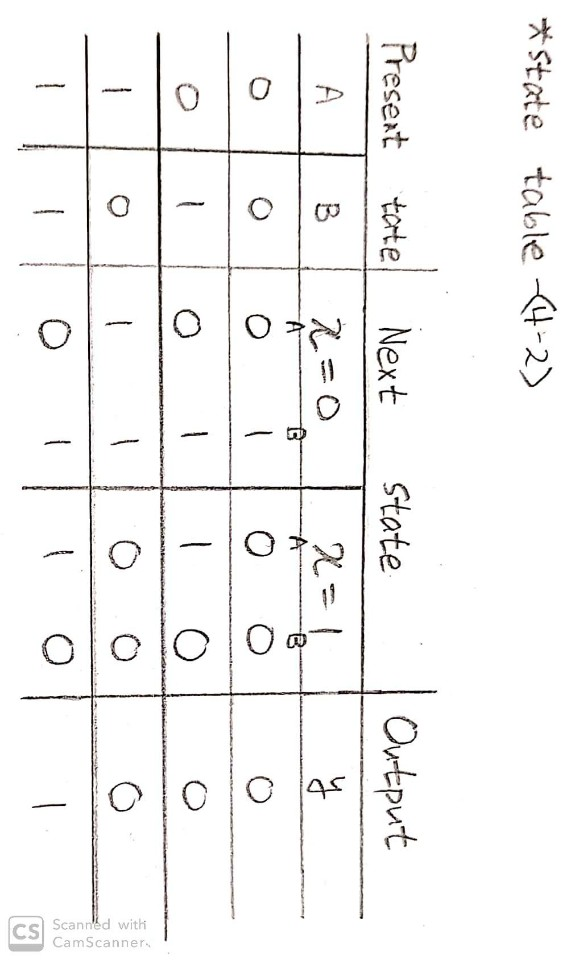 *state table -(4-2)
Present tate Next state Output
A B x=0 x=1 y
A B A B
0 0 0 1 0 0 0
0 1 0 1 1 0 0
1 0 1 1 0 0 0
1 1 0 1 1 0 1
CS Scanned with
CamScanner